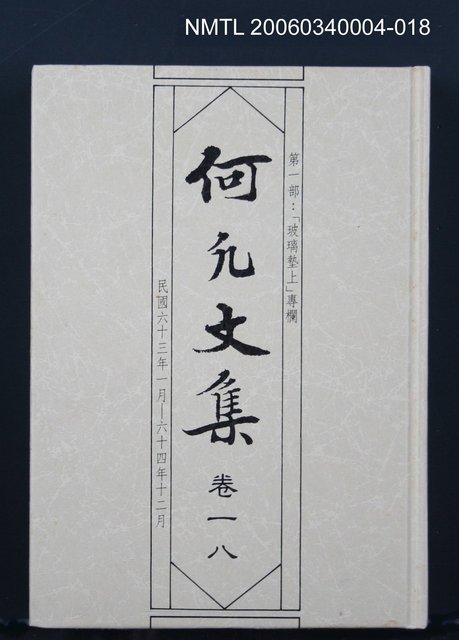 NMTL 20060340004-018
第一部：「玻璃墊上」專欄
何凡文集 卷一八
民國六十三年一月—六十四年十二月